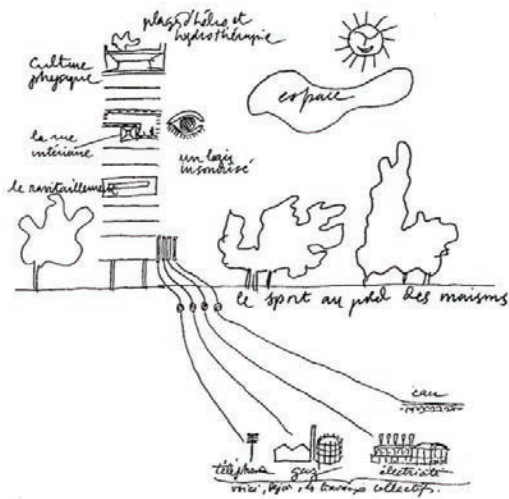 plage d'hélio et
hydrothérapie
culture
physique
espace
la rue
intérieure
un logis
insonorisé
le ravitaillement
le sport au pied des maisons
eau
téléphone
gaz
électricité
voici, déjà, les travaux collectifs.